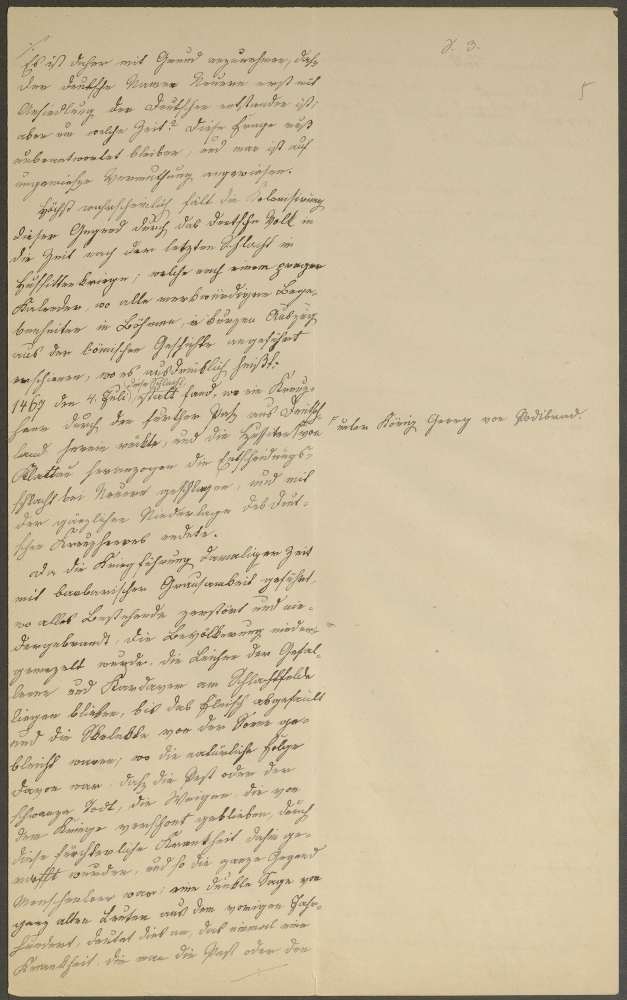 S. 3.
5
Es ist daher mit Grund anzunehmen, daß
der deutsche Namen Neuern erst mit
Ansiedlung der Deutschen entstanden ist;
aber um welche Zeit? diese Frage muß
unbeantwortet bleiben, und man ist auf
ungewiße Vermuthung angewiesen.
Höchst wahrscheinlich fält die Kolonisirung
dieser Gegend durch das deutsche Volk in
die Zeit nach der letzten Schlacht im
Hussittenkriege; welche nach einem prager
Kalender, wo alle merkwürdigen Bege-
benheiten in Böhmen, in kurzen Auszug
aus der bömischen Geschichte angeführt
erschienen, wo es ausdrücklich heißt:
1467 den 4. Juli diese Schlacht statt fand, wo ein Kreuz-
heer durch den further Paß aus Deutsch-
land herein rückte, und die Hussiten von
unter König Georg von Podibrad.
Klattau heranzogen die Entscheidungs-
schlacht bei Neuern geschlagen, und mit
der gänzlichen Niederlage des deut-
schen Kreuzheeres endete.
Da die Kriegführung damaliger Zeit
mit barbarischer Grausamkeit geführt,
wo alles Bestehende zerstört und nie-
dergebrandt, die Bevölkerung nieder-
gemezelt wurde, die Leichen der Gefal-
lenen und Kardaver am Schlachtfelde
liegen blieben, bis das Fleisch abgefault
und die Skelette von der Sonne ge-
bleicht waren; wo die natürliche Folge
davon war, daß die Pest oder der
schwarze Todt, die Wenigen die vom
dem Kriege verschont geblieben, durch
diese fürchterliche Krankheit dahin ge-
rafft wurden, und so die ganze Gegend
Menschenleer war; eine dunkle Sage von
ganz alten Leuten aus dem vorigen Jahr-
hundert, deutet dies an, daß einmal eine
Krankheit, die man die Pest oder den